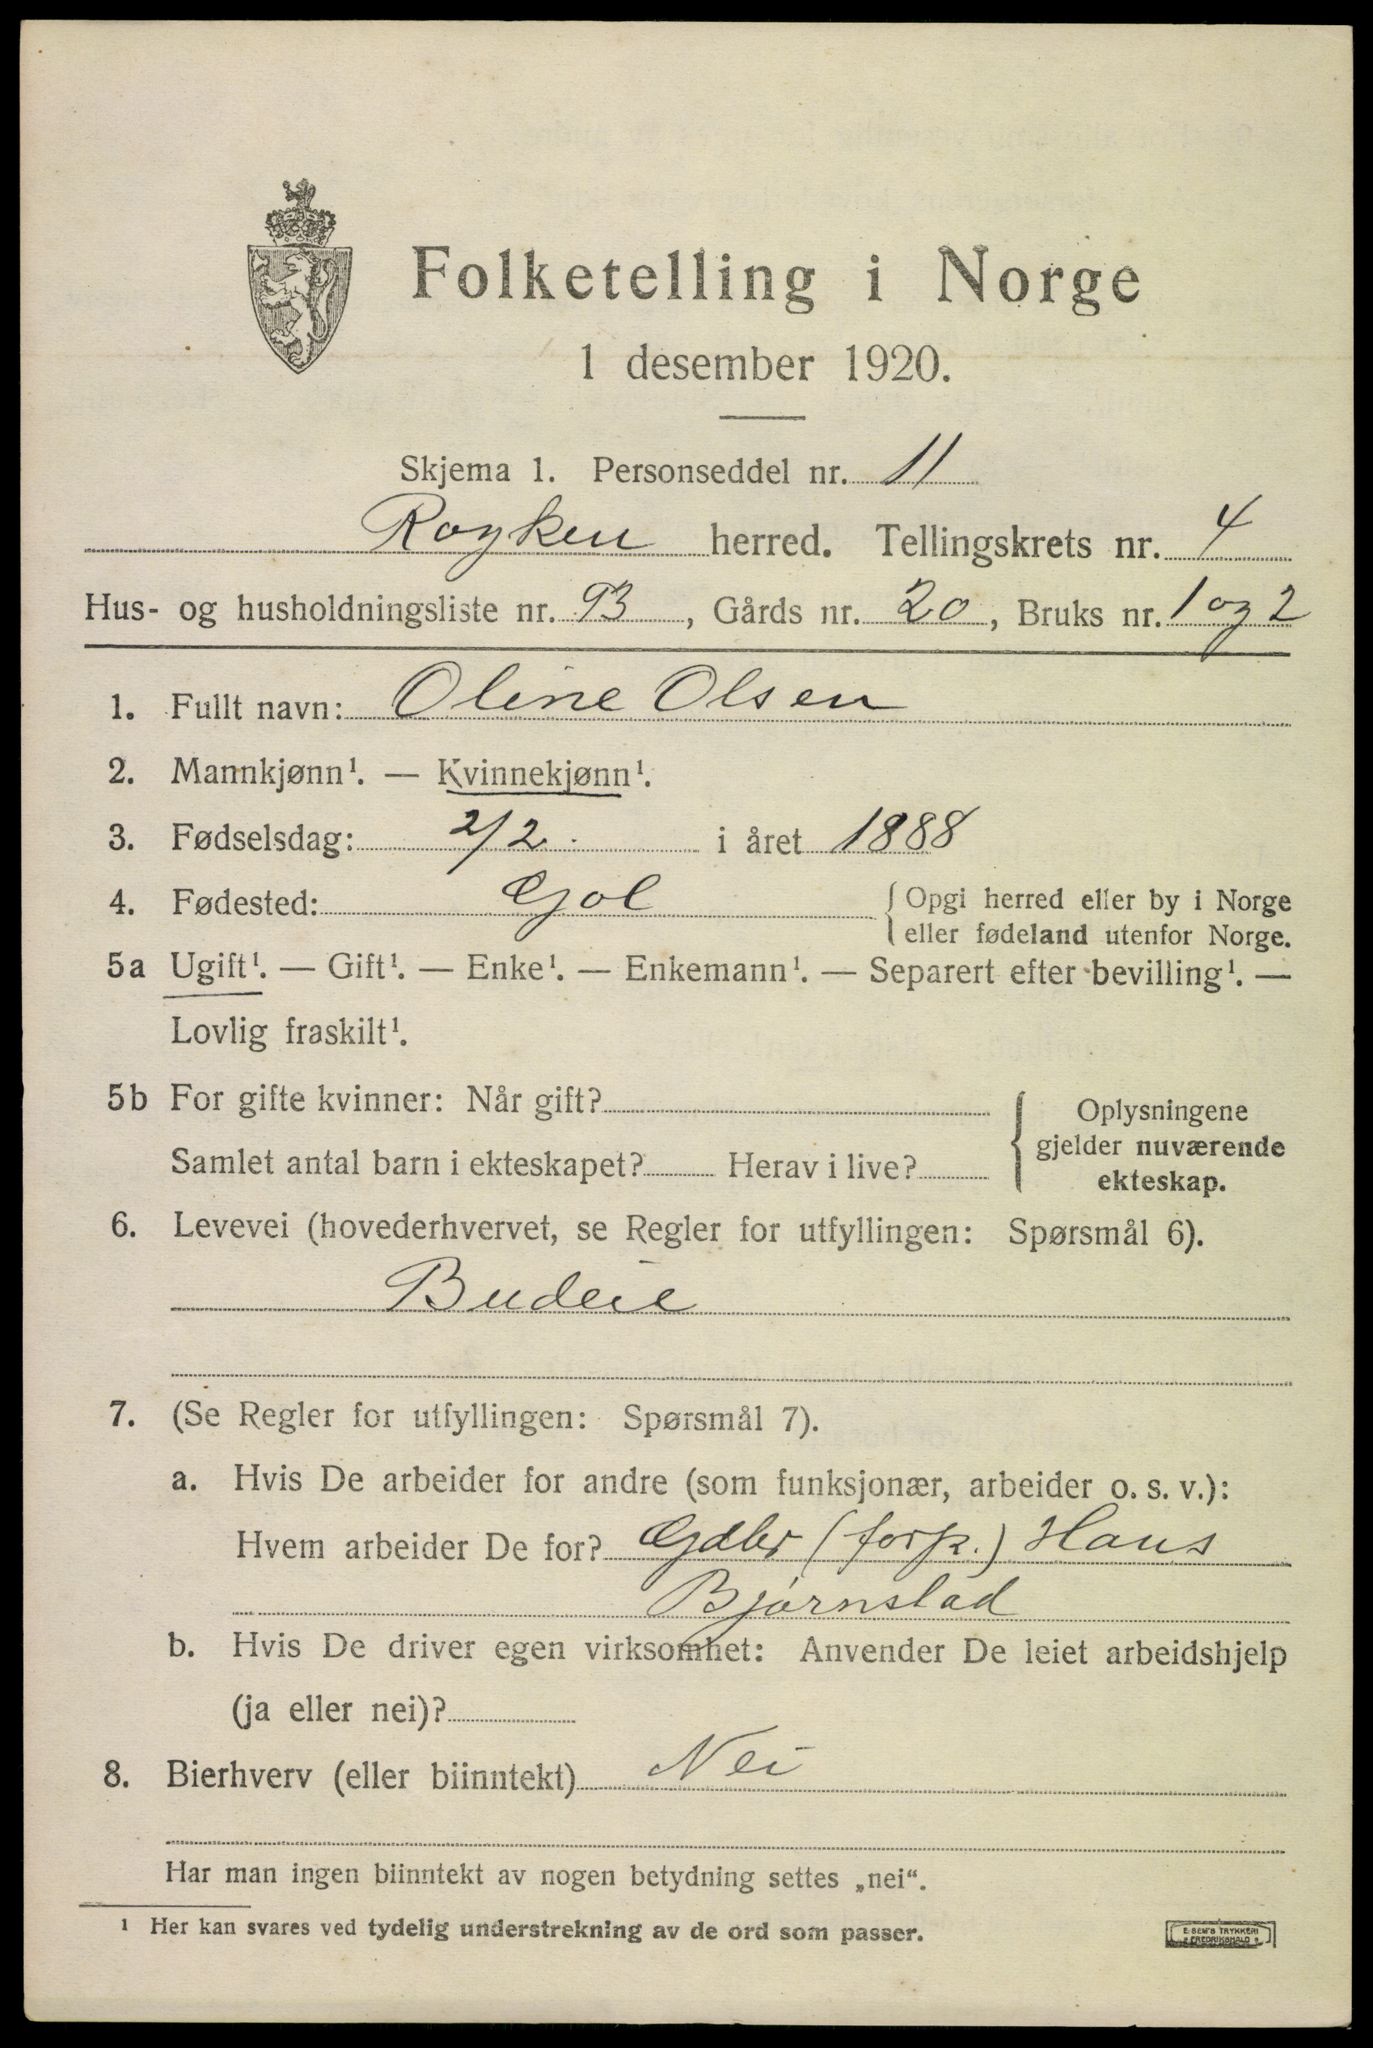 Folketelling i Norge
1 desember 1920.
Skjema 1. Personseddel nr. 11
Royken herred. Tellingskrets nr. 4
Hus- og husholdningsliste nr. 93, Gårds nr. 20, Bruks nr. 1 og 2
1. Fullt navn: Oline Olsen
2. Mannkjønn¹. — Kvinnekjønn¹.
3. Fødselsdag: 2/2. i året 1888
4. Fødested: Gol {Opgi herred eller by i Norge
eller fødeland utenfor Norge.
5a Ugift¹. — Gift¹. — Enke¹. — Enkemann¹. — Separert efter bevilling¹. —
Lovlig fraskilt¹.
5b For gifte kvinner: Når gift?
Samlet antal barn i ekteskapet? Herav i live?
Oplysningene
gjelder nuværende
ekteskap.
6. Levevei (hovederhvervet, se Regler for utfyllingen: Spørsmål 6).
Budeie
7. (Se Regler for utfyllingen: Spørsmål 7).
a. Hvis De arbeider for andre (som funksjonær, arbeider o. s. v.):
Hvem arbeider De for? Gdbr (forp.) Hans
Bjørnstad
b. Hvis De driver egen virksomhet: Anvender De leiet arbeidshjelp
(ja eller nei)?
8. Bierhverv (eller biinntekt) Nei
Har man ingen biinntekt av nogen betydning settes „nei“.
¹ Her kan svares ved tydelig understrekning av de ord som passer.
E. SEM'S TRYKKERI
FREDRIKSHALD